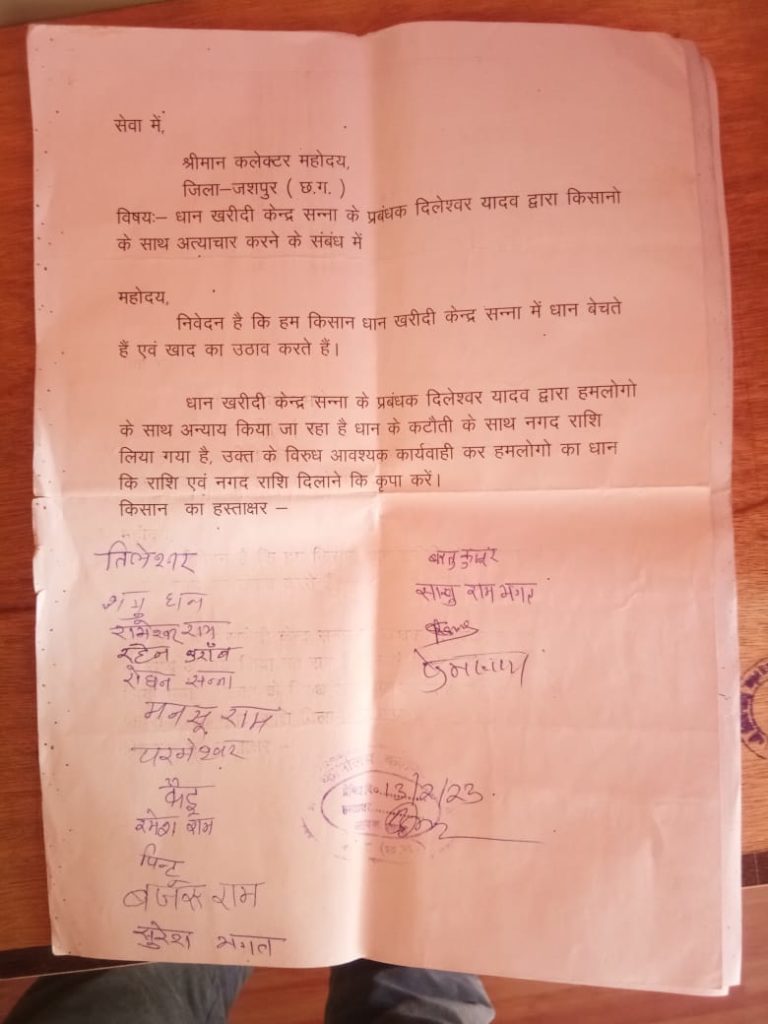 सेवा में,
श्रीमान कलेक्टर महोदय,
जिला–जशपुर ( छ.ग. )
विषयः– धान खरीदी केन्द्र सन्ना के प्रबंधक दिलेश्वर यादव द्वारा किसानो
के साथ अत्याचार करने के संबंध में
महोदय,
निवेदन है कि हम किसान धान खरीदी केन्द्र सन्ना में धान बेचते
हैं एवं खाद का उठाव करते हैं।
धान खरीदी केन्द्र सन्ना के प्रबंधक दिलेश्वर यादव द्वारा हमलोगो
के साथ अन्याय किया जा रहा है धान के कटौती के साथ नगद राशि
लिया गया है, उक्त के विरुध आवश्यक कार्यवाही कर हमलोगो का धान
कि राशि एवं नगद राशि दिलाने कि कृपा करें।
किसान का हस्ताक्षर –
तिलेश्वर
साधु राम भगत
रामेश्वर राम
रोधन सन्ना
मनसू राम
परमेश्वर
रमेश राम
पिन्टू
राम
सुरेश भगत
13/2/23